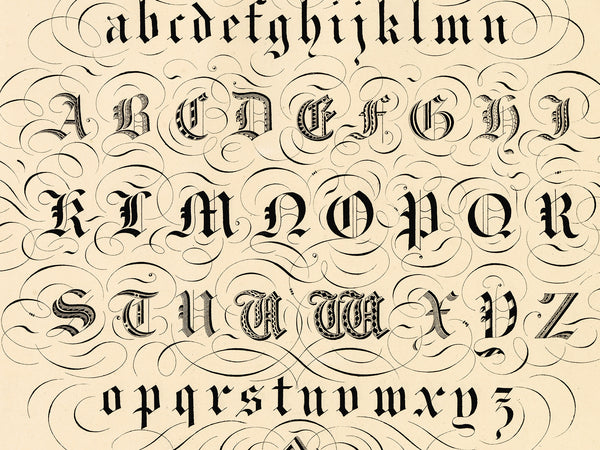 abcdefghijklmn
A B C D E F G H I
K L M N O P Q R
S T U U W X Y Z
opqrstuvwxyz